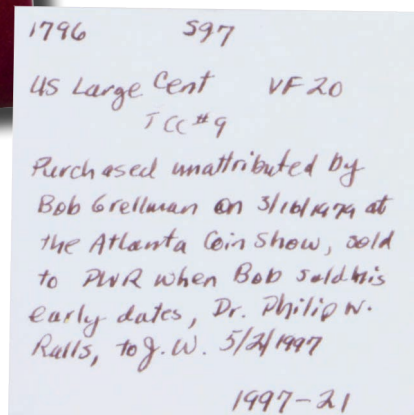 1796 S97
US Large Cent VF 20
TCC #9
Purchased unattributed by
Bob Grellman on 3/16/1979 at
the Atlanta Coin Show, sold
to PWR when Bob sold his
early dates, Dr. Philip W.
Ralls, to J.W. 5/2/1997
1997-21